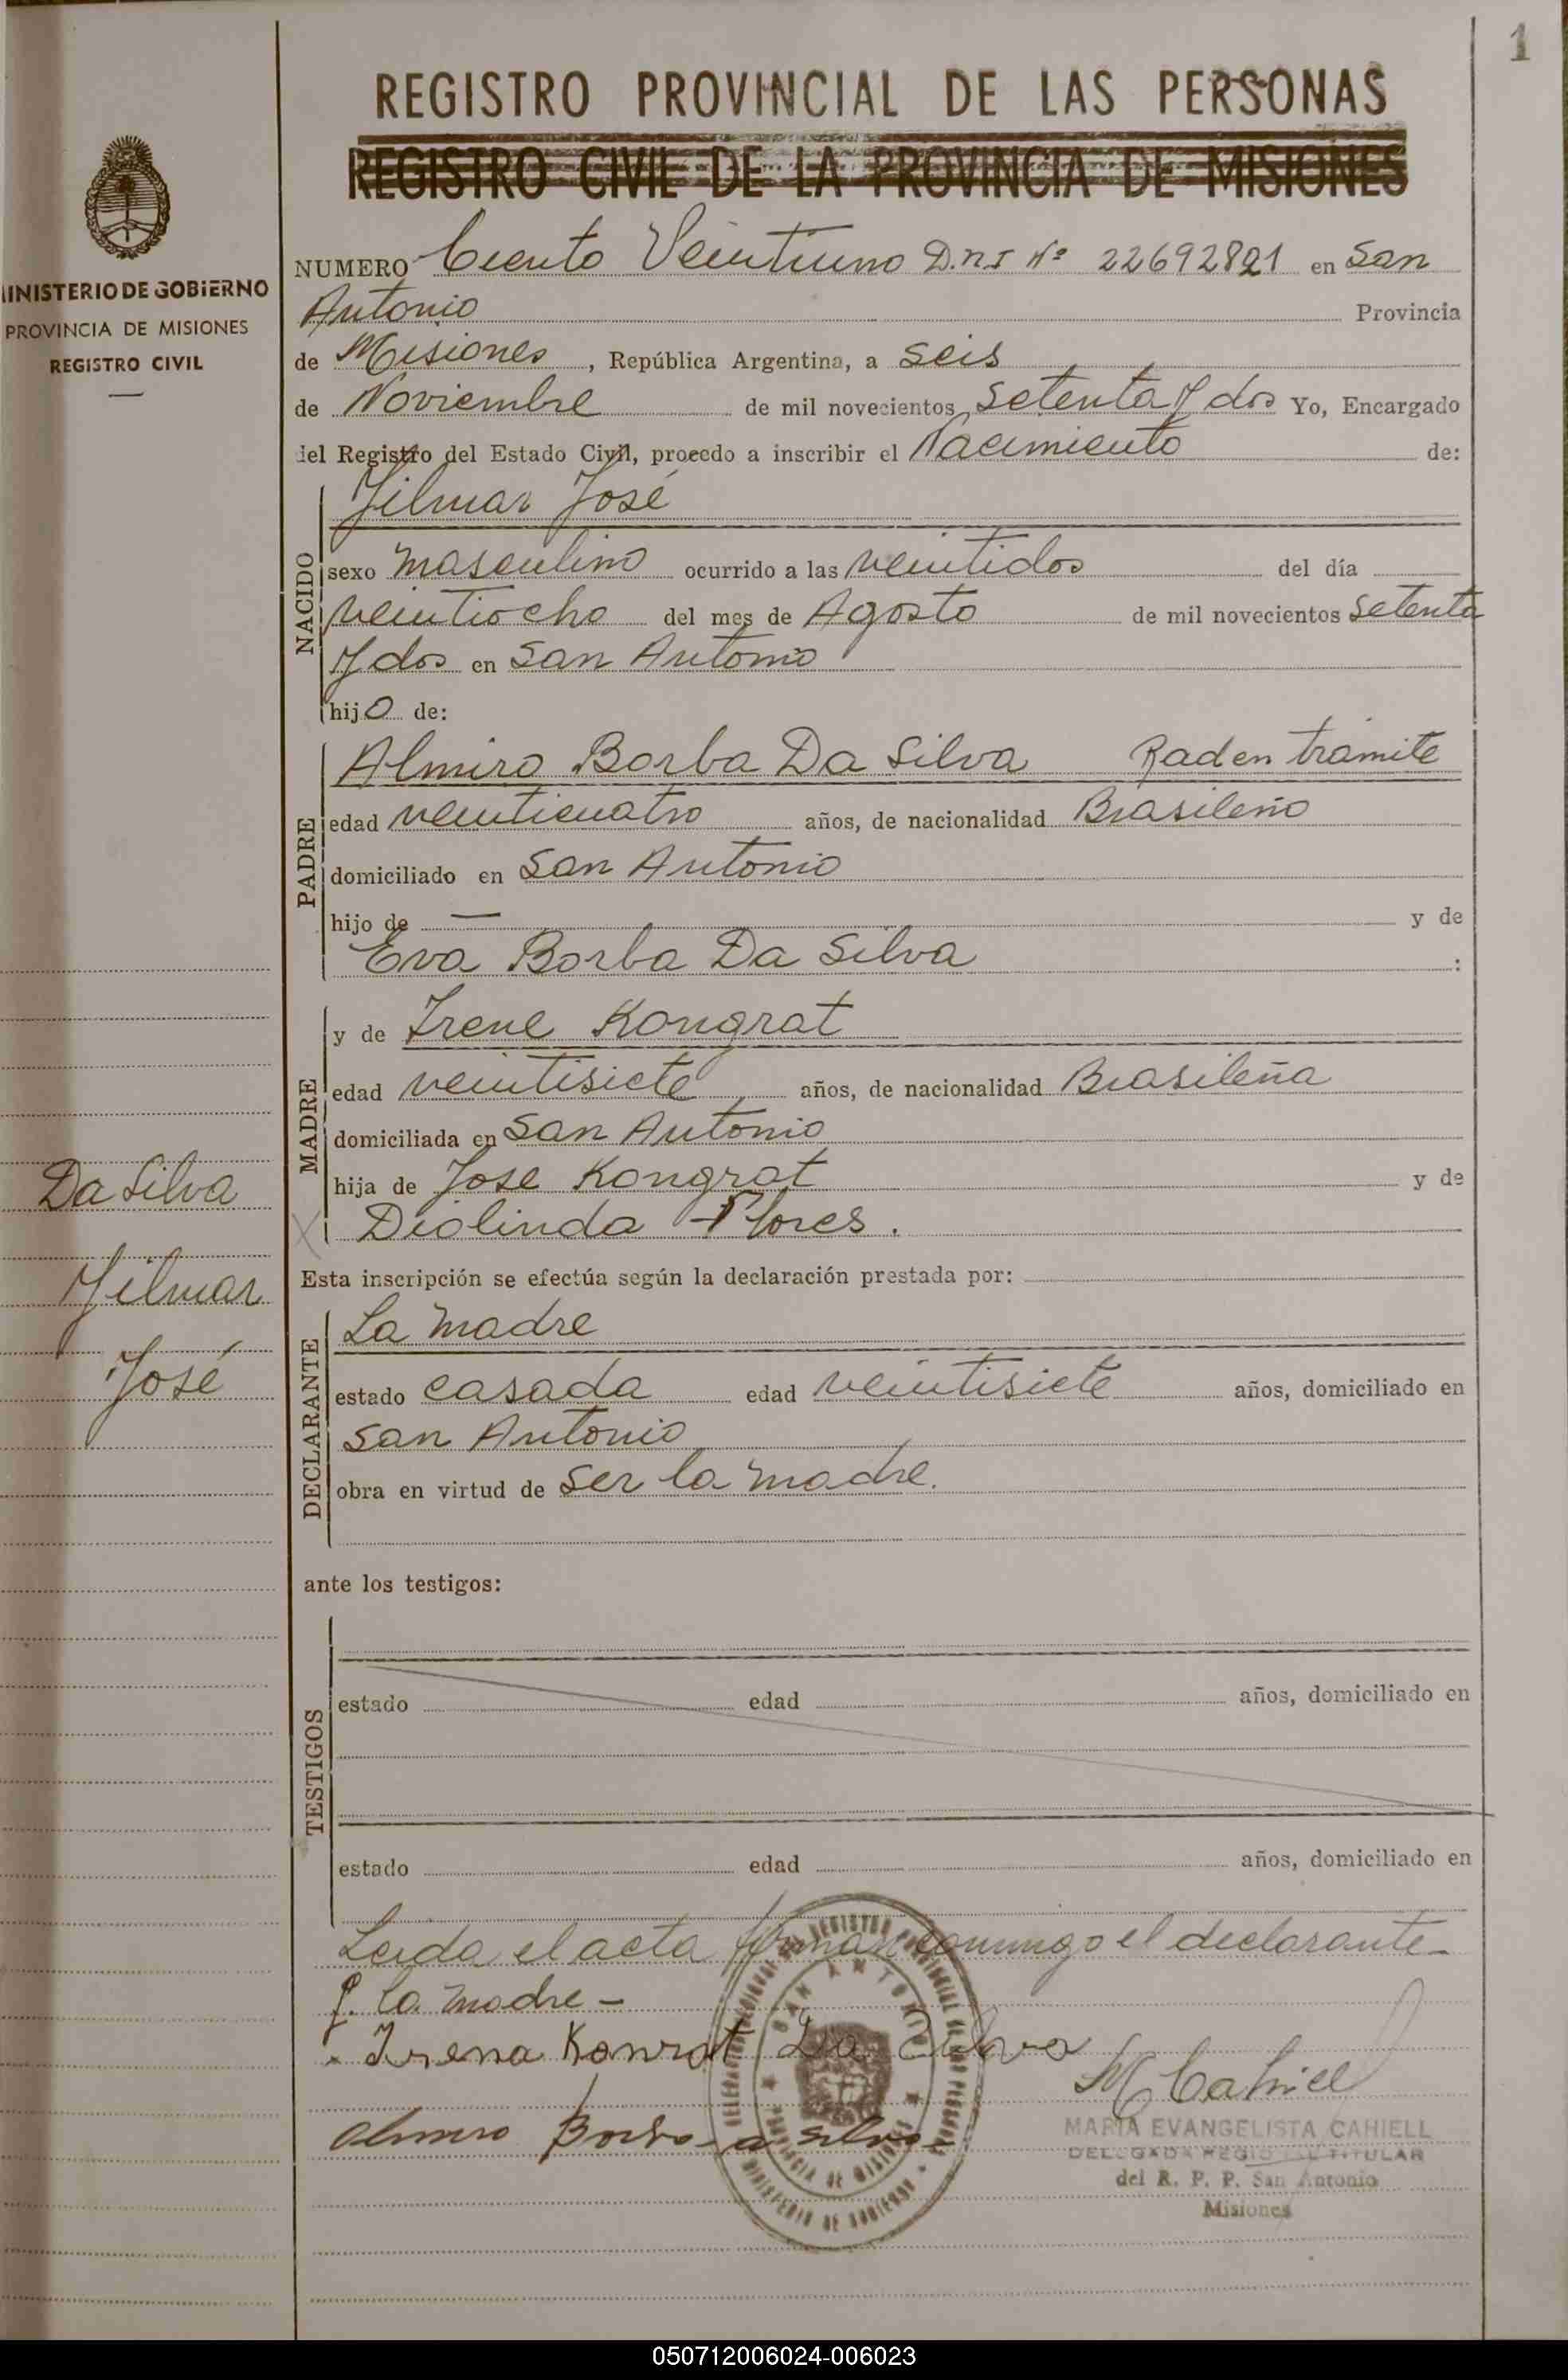 1
REGISTRO PROVINCIAL DE LAS PERSONAS
REGISTRO CIVIL DE LA PROVINCIA DE MISIONES
MINISTERIO DE GOBIERNO
PROVINCIA DE MISIONES
REGISTRO CIVIL
NUMERO Ciento Veintiuno D.n.I Nº 22692821 en San
Antonio Provincia
de Misiones, República Argentina, a seis
de Noviembre de mil novecientos setenta y dos Yo, Encargado
del Registro del Estado Civil, procedo a inscribir el Nacimiento de:
Jilmar José
NACIDO
sexo masculino ocurrido a las veintidos del día
veintiocho del mes de Agosto de mil novecientos setenta
y dos en San Antonio
hijo de:
PADRE
Almiro Borba Da Silva Rad en tramite
edad veinticuatro años, de nacionalidad Brasileño
domiciliado en San Antonio
hijo de — y de
Eva Borba Da Silva :
MADRE
y de Irene Kongrat
edad veintisiete años, de nacionalidad Brasileña
domiciliada en San Antonio
hija de Jose Kongrat y de
Diolinda Flores.
Da Silva
Jilmar
José
Esta inscripción se efectúa según la declaración prestada por:
DECLARANTE
La madre
estado casada edad veintisiete años, domiciliado en
San Antonio
obra en virtud de ser la madre.
ante los testigos:
TESTIGOS
estado edad años, domiciliado en
estado edad años, domiciliado en
Leida el acta firman conmigo el declarante
y la madre -
Irena Konrat Da Silva
M Cahiell
Almiro Borba da Silva
MARIA EVANGELISTA CAHIELL
DELEGADA REGIONAL TITULAR
del R. P. P. San Antonio
Misiones
SAN ANTONIO
PROVINCIA DE MISIONES
MINISTERIO DE GOBIERNO
050712006024-006023